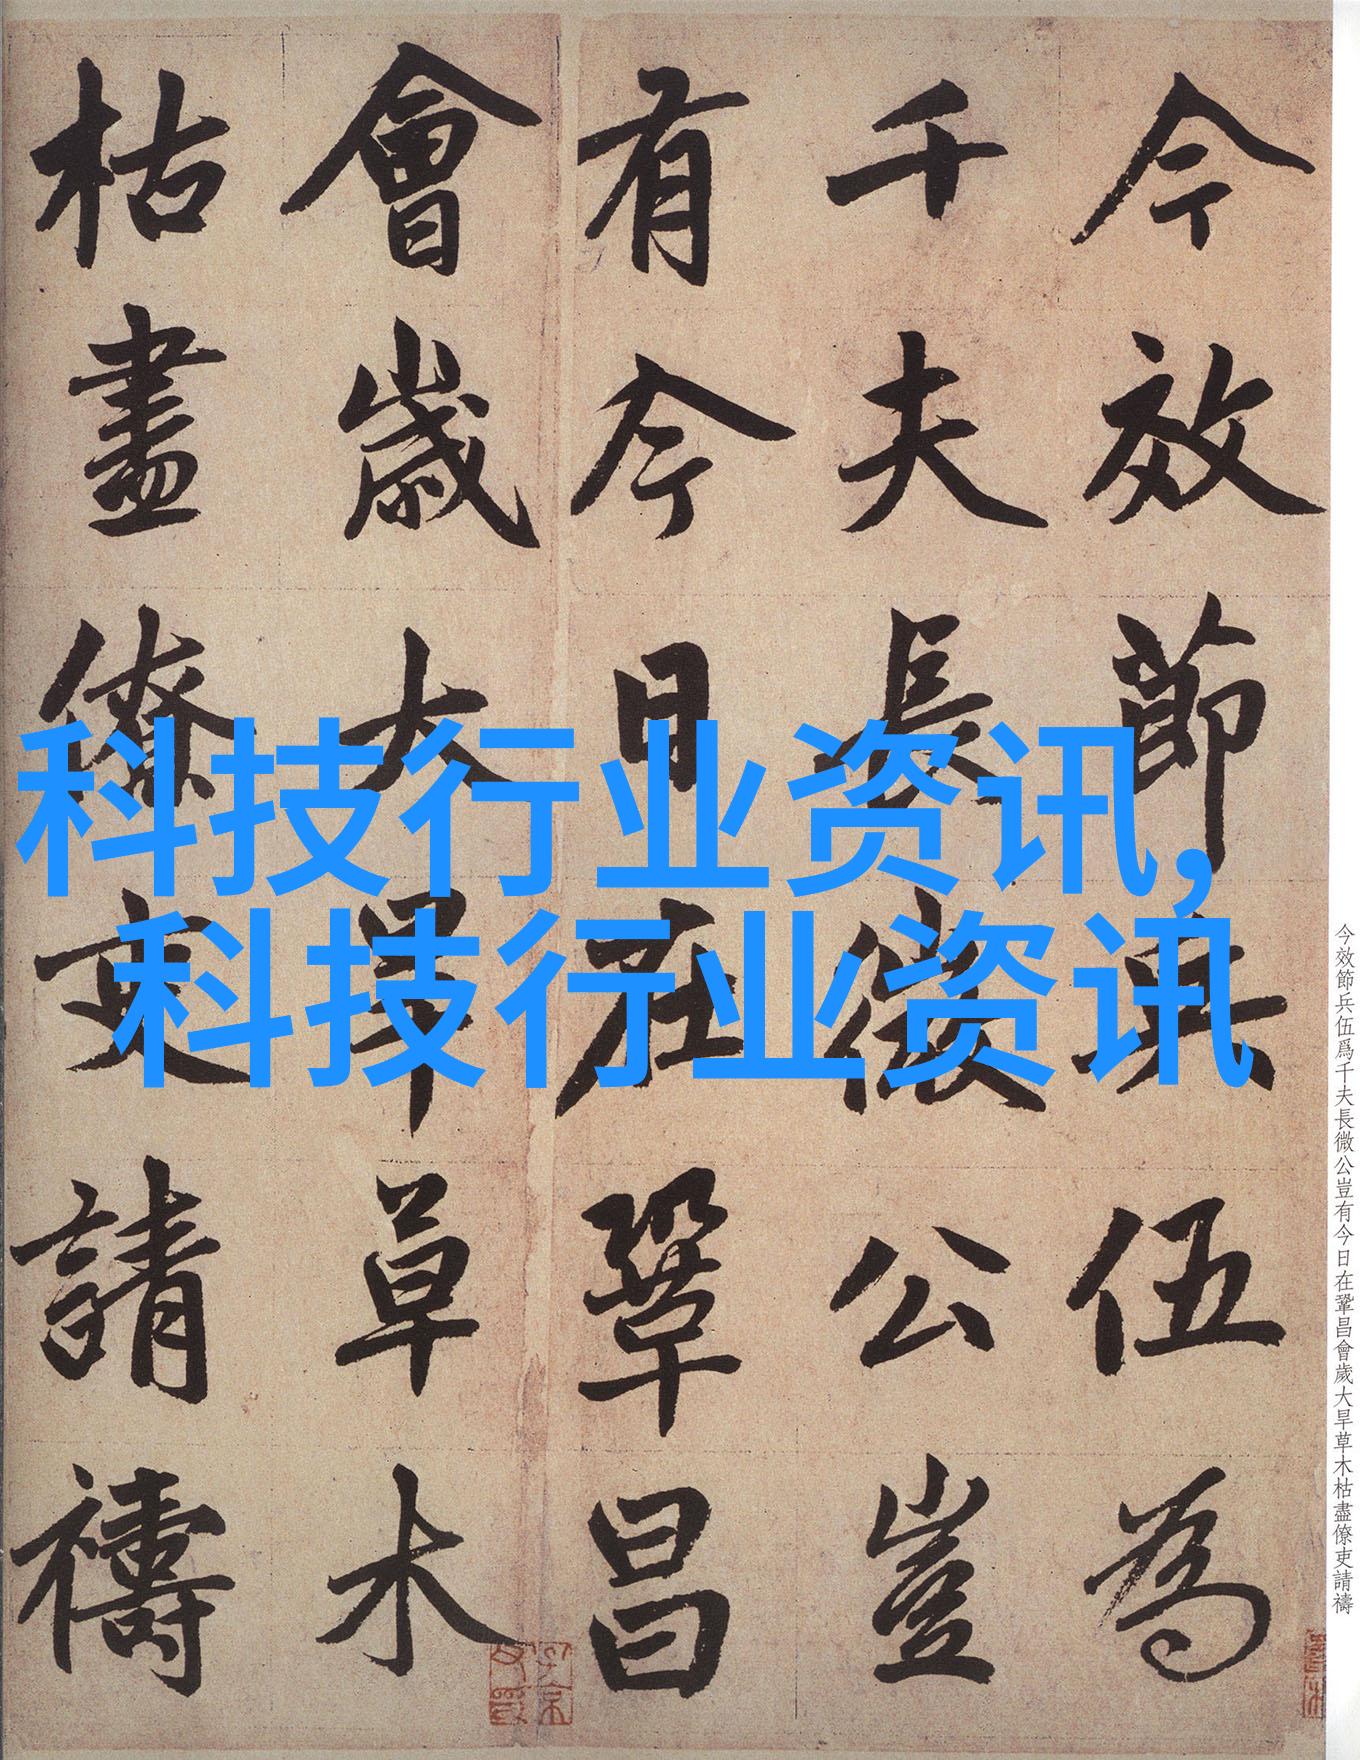 今效節兵伍為
千夫長微公豈
有今日在鞏昌
會歲大旱草木
枯盡僚吏請禱
科技行业资讯,
科技行业资讯
今效節兵伍爲千夫長微公豈有今日在鞏昌會歲大旱草木枯盡僚吏請禱